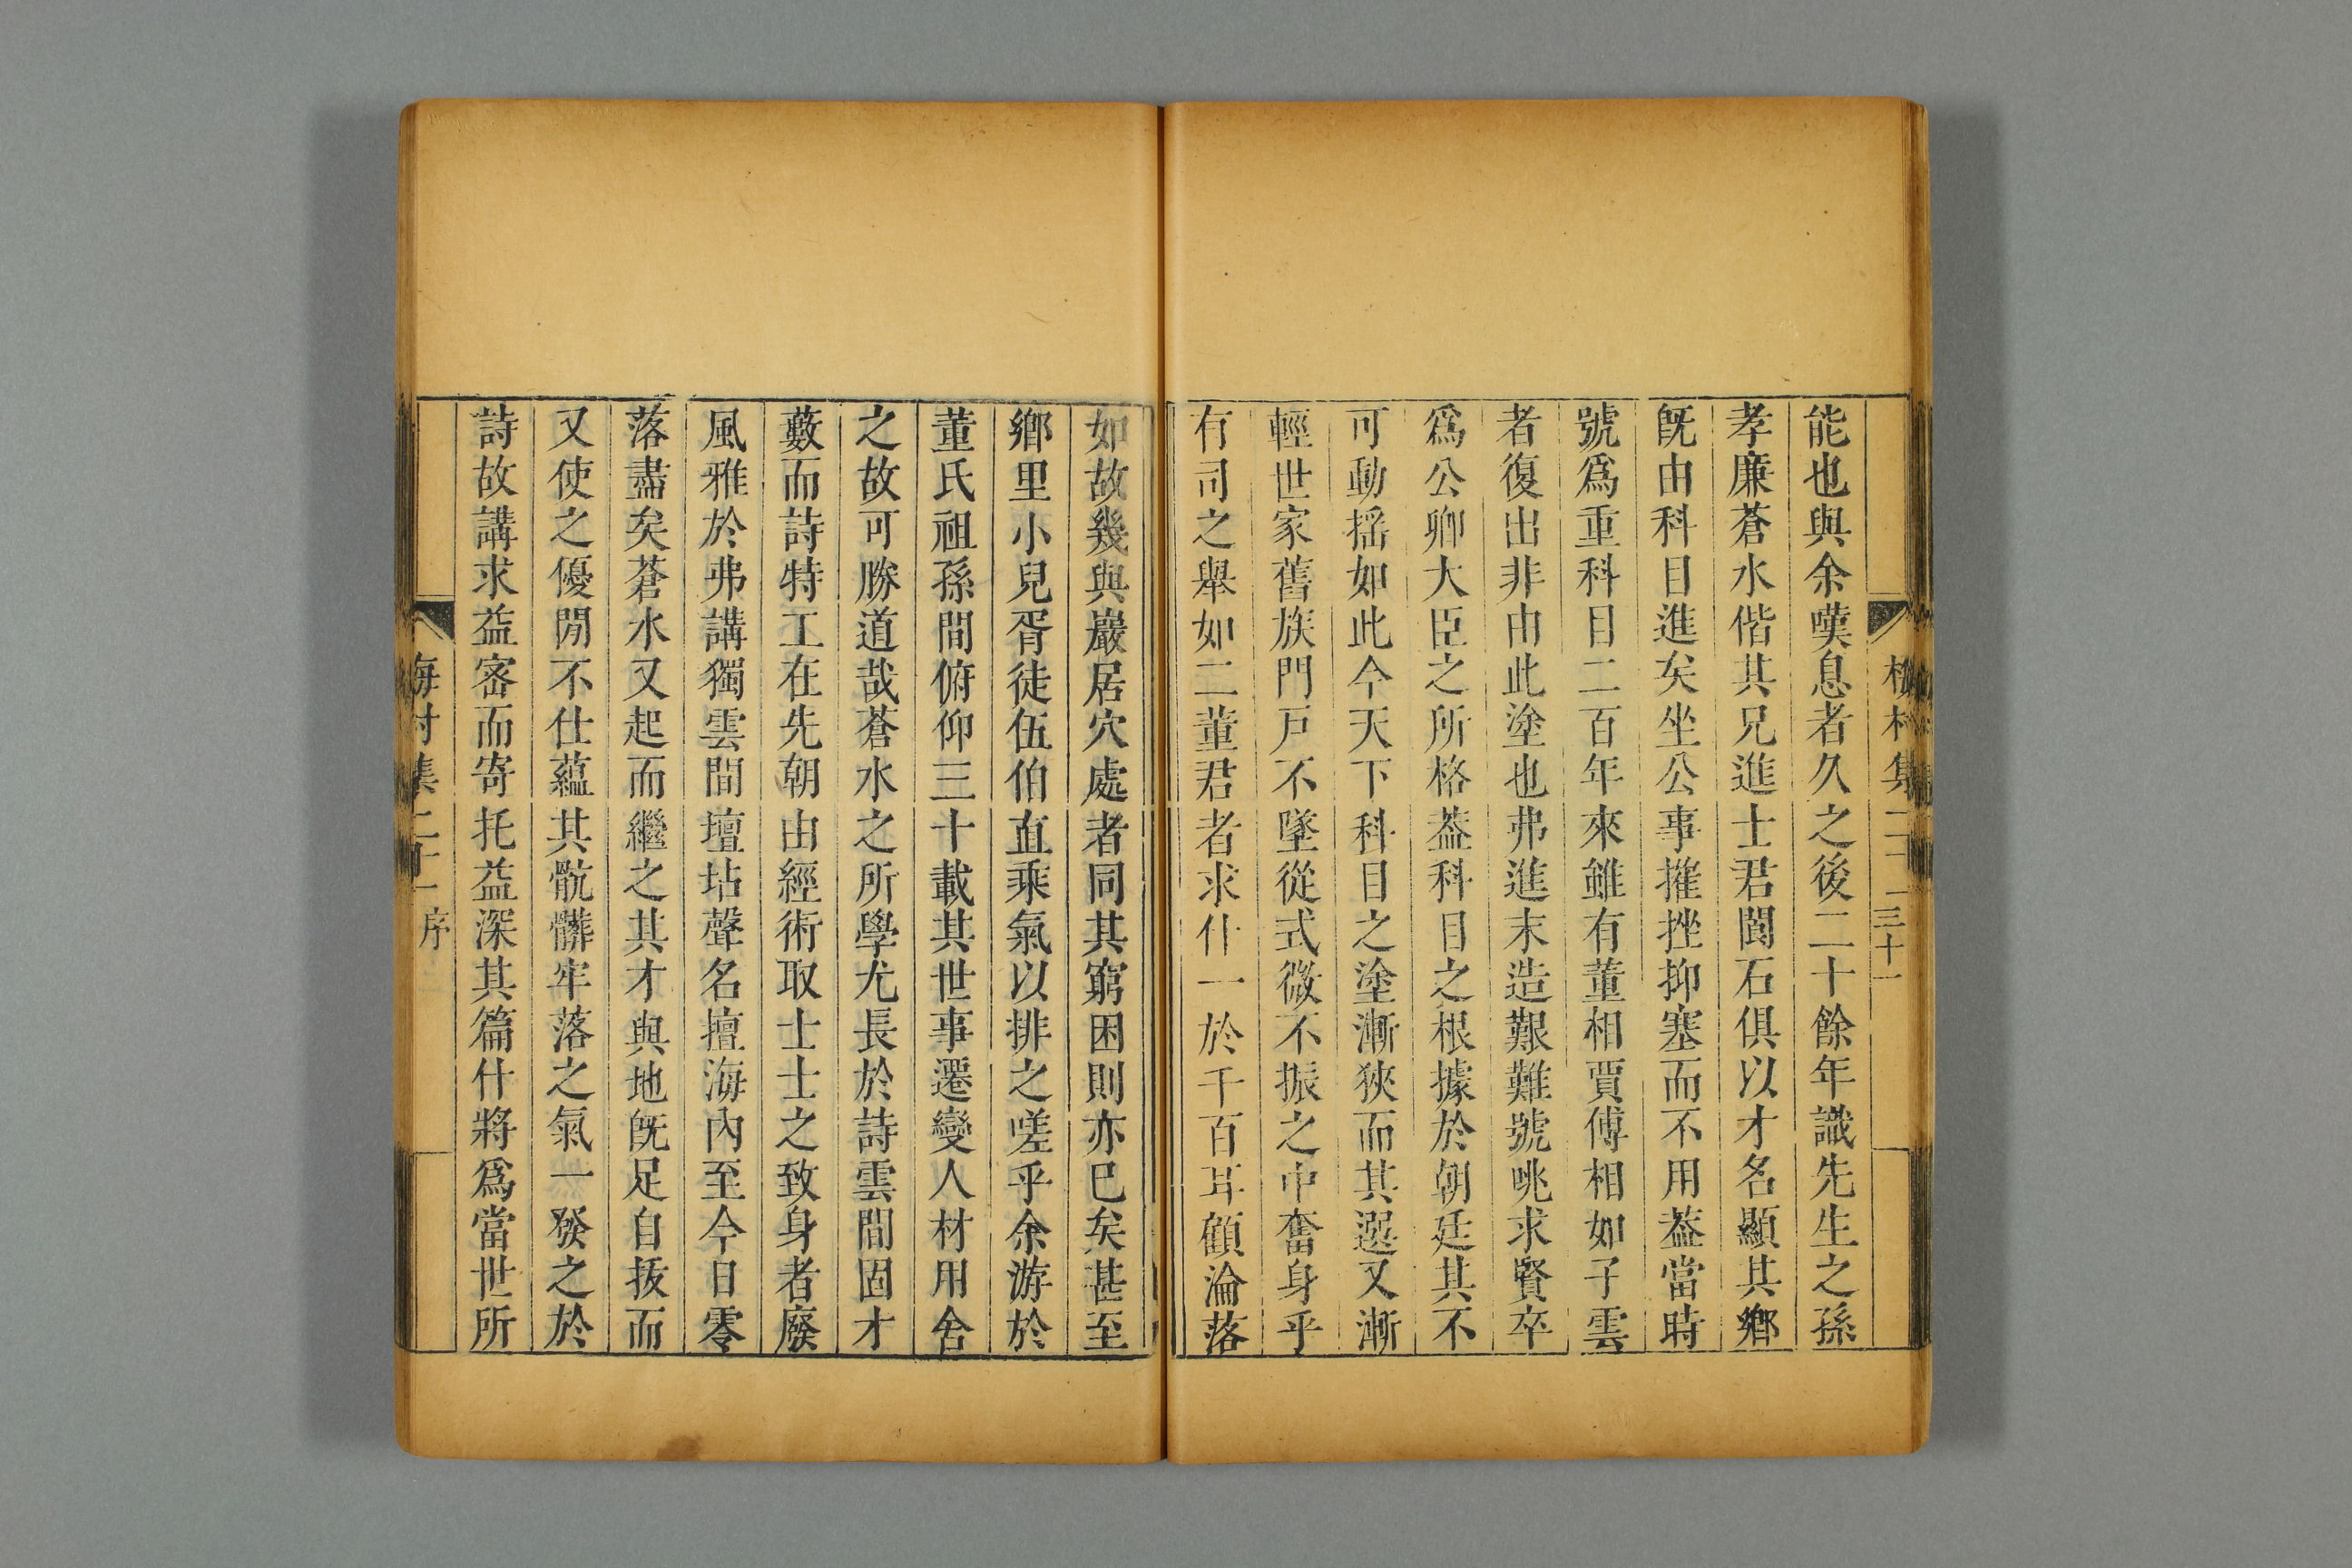 能也與余嘆息者久之後二十餘年識先生之孫
孝廉蒼水偕其兄進士君閬石俱以才名顯其鄉
旣由科目進矣坐公事摧挫抑塞而不用葢當時
號爲重科目二百年來雖有董相賈傅相如子雲
者復出非由此塗也弗進末造艱難號咷求賢卒
爲公卿大臣之所格葢科目之根據於朝廷其不
可動揺如此今天下科目之塗漸狹而其選又漸
輕世家舊族門戸不墜從式微不振之中奮身乎
有司之舉如二董君者求什一於千百耳顧淪落
如故幾與巖居穴處者同其窮困則亦巳矣甚至
鄉里小兒胥徒伍伯直乘氣以排之嗟乎余游於
董氏祖孫間俯仰三十載其世事遷變人材用舍
之故可勝道哉蒼水之所學尤長於詩雲間固才
藪而詩特工在先朝由經術取士士之致身者廢
風雅於弗講獨雲間壇坫聲名擅海內至今日零
落盡矣蒼水又起而繼之其才與地旣足自拔而
又使之優閒不仕蘊其骯髒牢落之氣一發之於
詩故講求益密而寄托益深其篇什將爲當世所
梅村集二十一 序
三十一